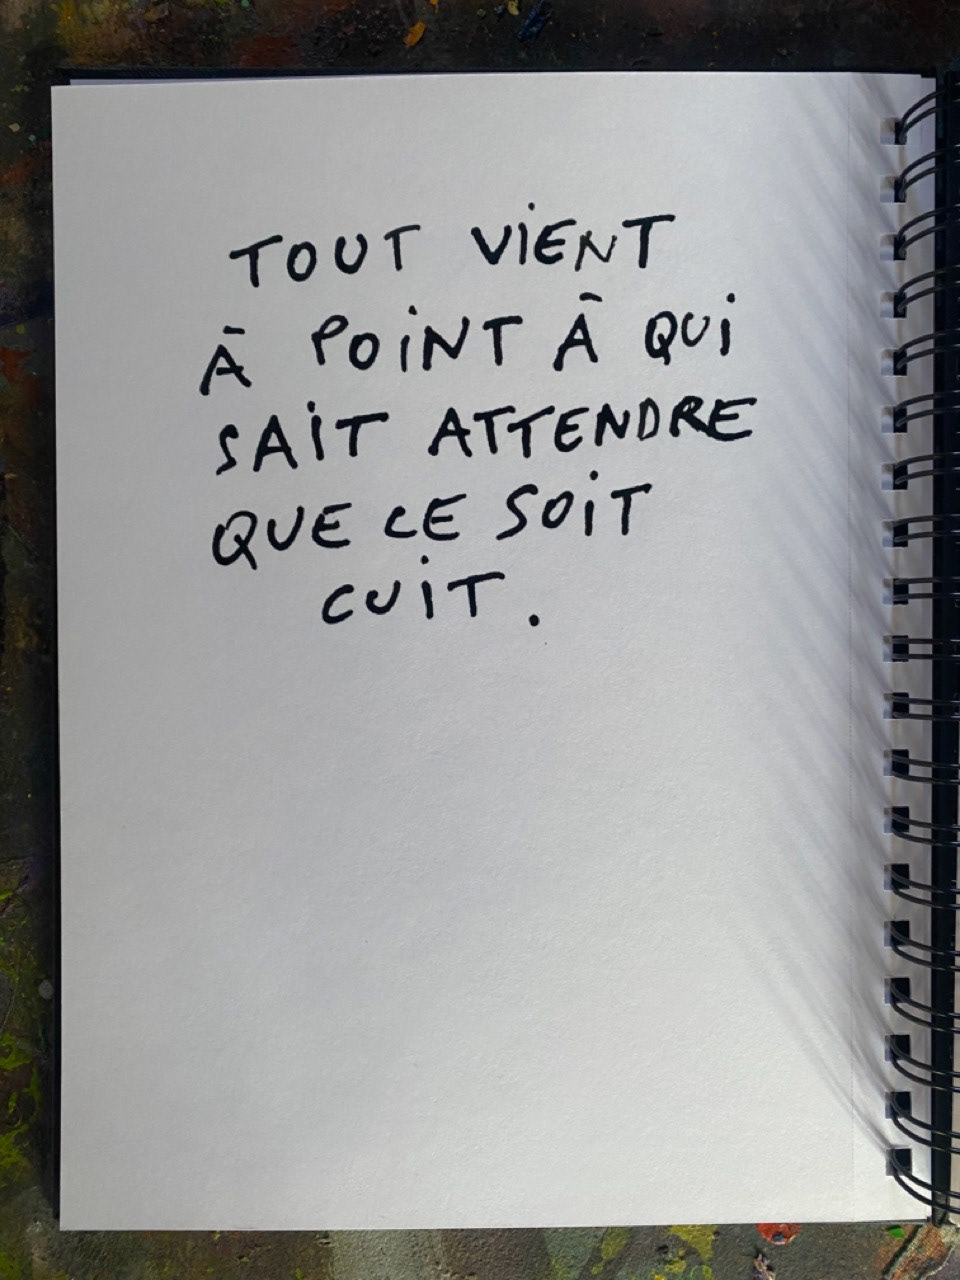 TOUT VIENT
À POINT À QUI
SAIT ATTENDRE
QUE CE SOIT
CUIT.